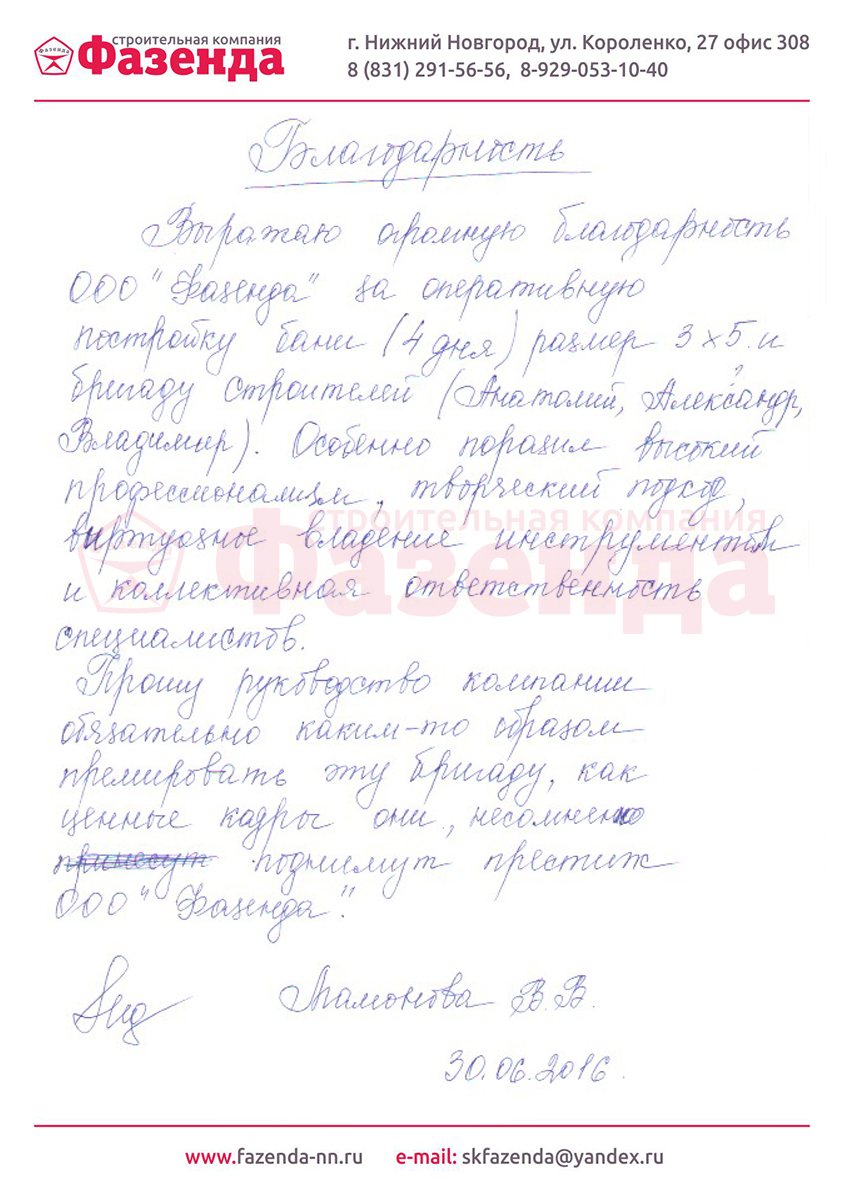 строительная компания
Фазенда
г. Нижний Новгород, ул. Короленко, 27 офис 308
8 (831) 291-56-56, 8-929-053-10-40
Благодарность
Выражаю огромную благодарность
ООО "Фазенда" за оперативную
постройку бани (4 дня) размер 3×5 и
бригаду строителей (Анатолий, Александр,
Владимир). Особенно поразил высокий
профессионализм, творческий подход,
виртуозное владение инструментом
и коллективная ответственность
специалистов.
Прошу руководство компании
обязательно каким-то образом
премировать эту бригаду, как
ценные кадры они, несомненно
принесут поднимут престиж
ООО "Фазенда".
Мамонова В.В.
30.06.2016.
строительная компания
Фазенда
www.fazenda-nn.ru e-mail: skfazenda@yandex.ru